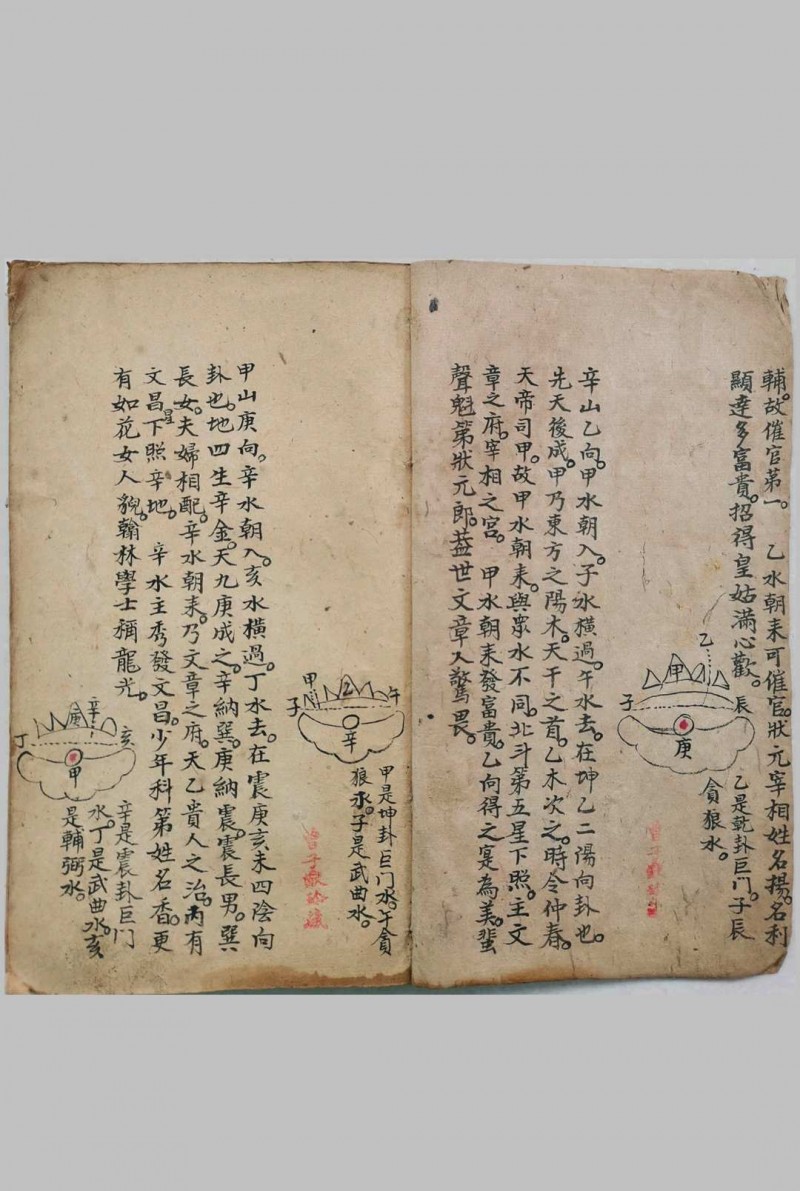 輔。故催官第一。 乙水朝来可催官。狀元宰相姓名揚。名利
顯達多富貴。招得皇姑滿心歡。
乙
甲
子
辰
庚
乙是乾卦巨門。子辰
貪狼水。
辛山乙向。甲水朝入。子水橫過。午水去。在坤乙二陽向卦也。
先天後成。甲乃東方之陽木。天干之首。乙木次之。時令仲春。
天帝司甲。故甲水朝来。與眾水不同。北斗第五星下照。主文
章之府。宰相之宮。 甲水朝来發富貴。乙向得之寔為美。蜚
聲魁第狀元郎。蓋世文章人驚畏。
甲
乙
午
子
辛
甲是坤卦巨门水。午貪
狼水。子是武曲水。
甲山庚向。辛水朝入。亥水橫過。丁水去。在震庚亥未四陰向
卦也。地四生辛金。天九庚成之。辛納巽。庚納震。震長男。巽
長女。夫婦相配。辛水朝来。乃文章之府。天乙貴人之治。丙有
文昌星下照辛地。 辛水主秀發文昌。少年科第姓名香。更
有如花女人貌。翰林學士稱龍光。
辛
庚
亥
丁
甲
辛是震卦巨门
水。丁是武曲水。亥
是輔弼水。